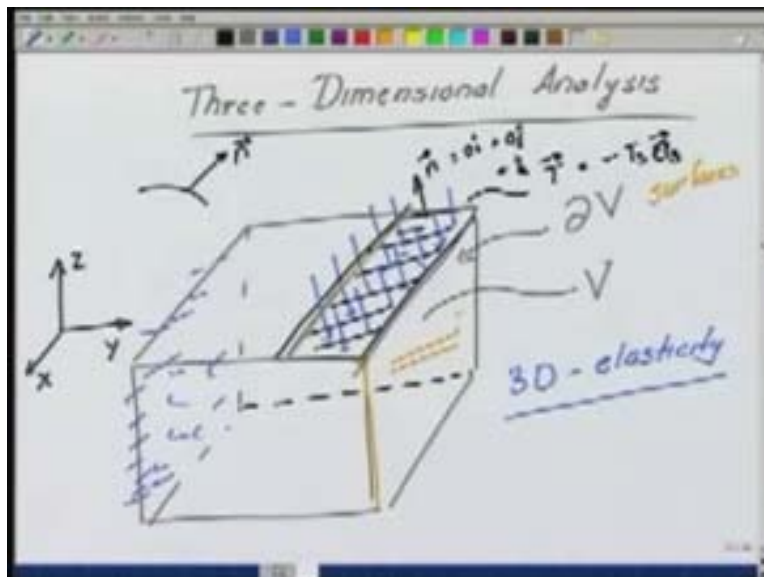 Three - Dimensional Analysis
n
n = 0i + 0j
+ k
T = - T₃
surfaces
∂V
V
Z
Y
X
3D - elasticity